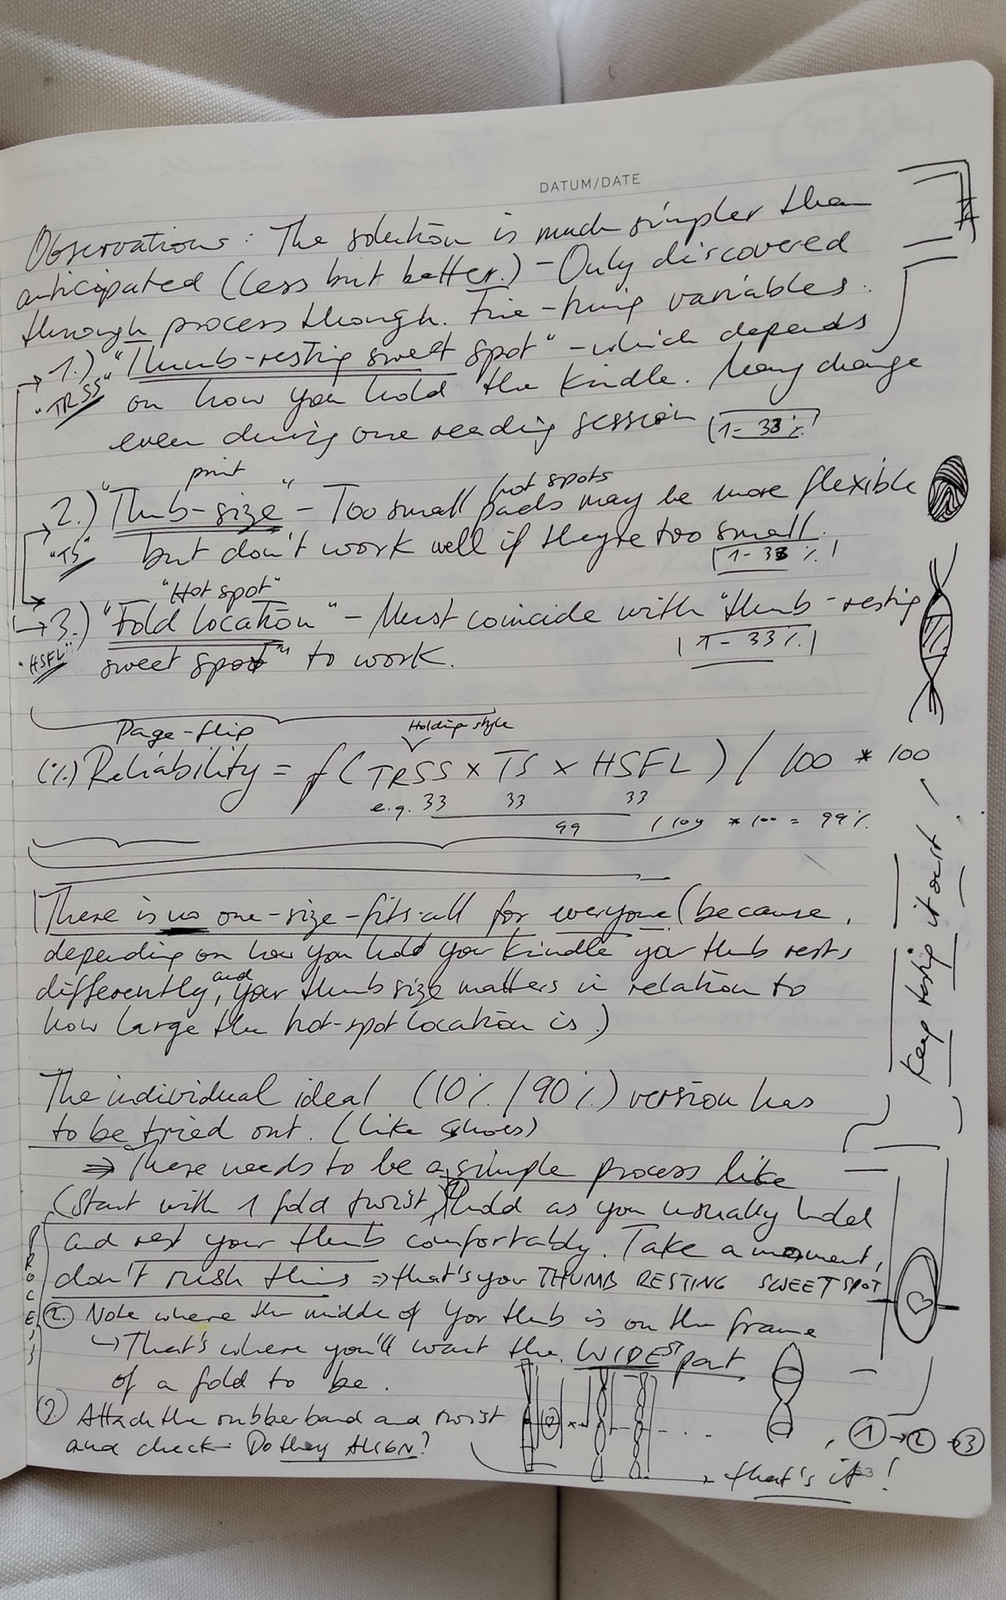 DATUM/DATE
Observations: The solution is much simpler than
anticipated (less but better.) - Only discovered
through process though. Fine-tuning variables.
→ 1.) "Thumb-resting sweet spot" - which depends
"TRSS" on how you hold the Kindle. May change
even during one reading session (1-33%)
print
hot spots
→ 2.) "Thub-size" - Too small pads may be more flexible
"TS" but don't work well if they're too small.
1-33%
"Hot spot"
→ 3.) "Fold location" - Must coincide with "thumb-resting
"HSFL" sweet spot" to work.
1-33%
Page-flip
Holding style
(%) Reliability = f (TRSS x TS x HSFL) / 100 * 100
e.g. 33 33 33
99 / 100 * 100 = 99%
There is no one-size-fits-all for everyone (because,
depending on how you hold your Kindle your thub rests
differently, and your thumb size matters in relation to
how large the hot-spot location is.)
The individual ideal (10% / 90%) version has
to be tried out. (like shoes)
⇒ There needs to be a simple process like
(Start with 1 fold twist) Hold as you usually hold
and rest your thub comfortably. Take a moment,
don't rush this ⇒ that's your THUMB RESTING SWEET SPOT
② Note where the middle of your thub is on the frame
↳ That's where you'll want the WIDEST part
of a fold to be.
② Attach the rubberband and twist
and check - Do they ALIGN?
PROCESS
Keep testing it out!
① → ② → ③
that's it!